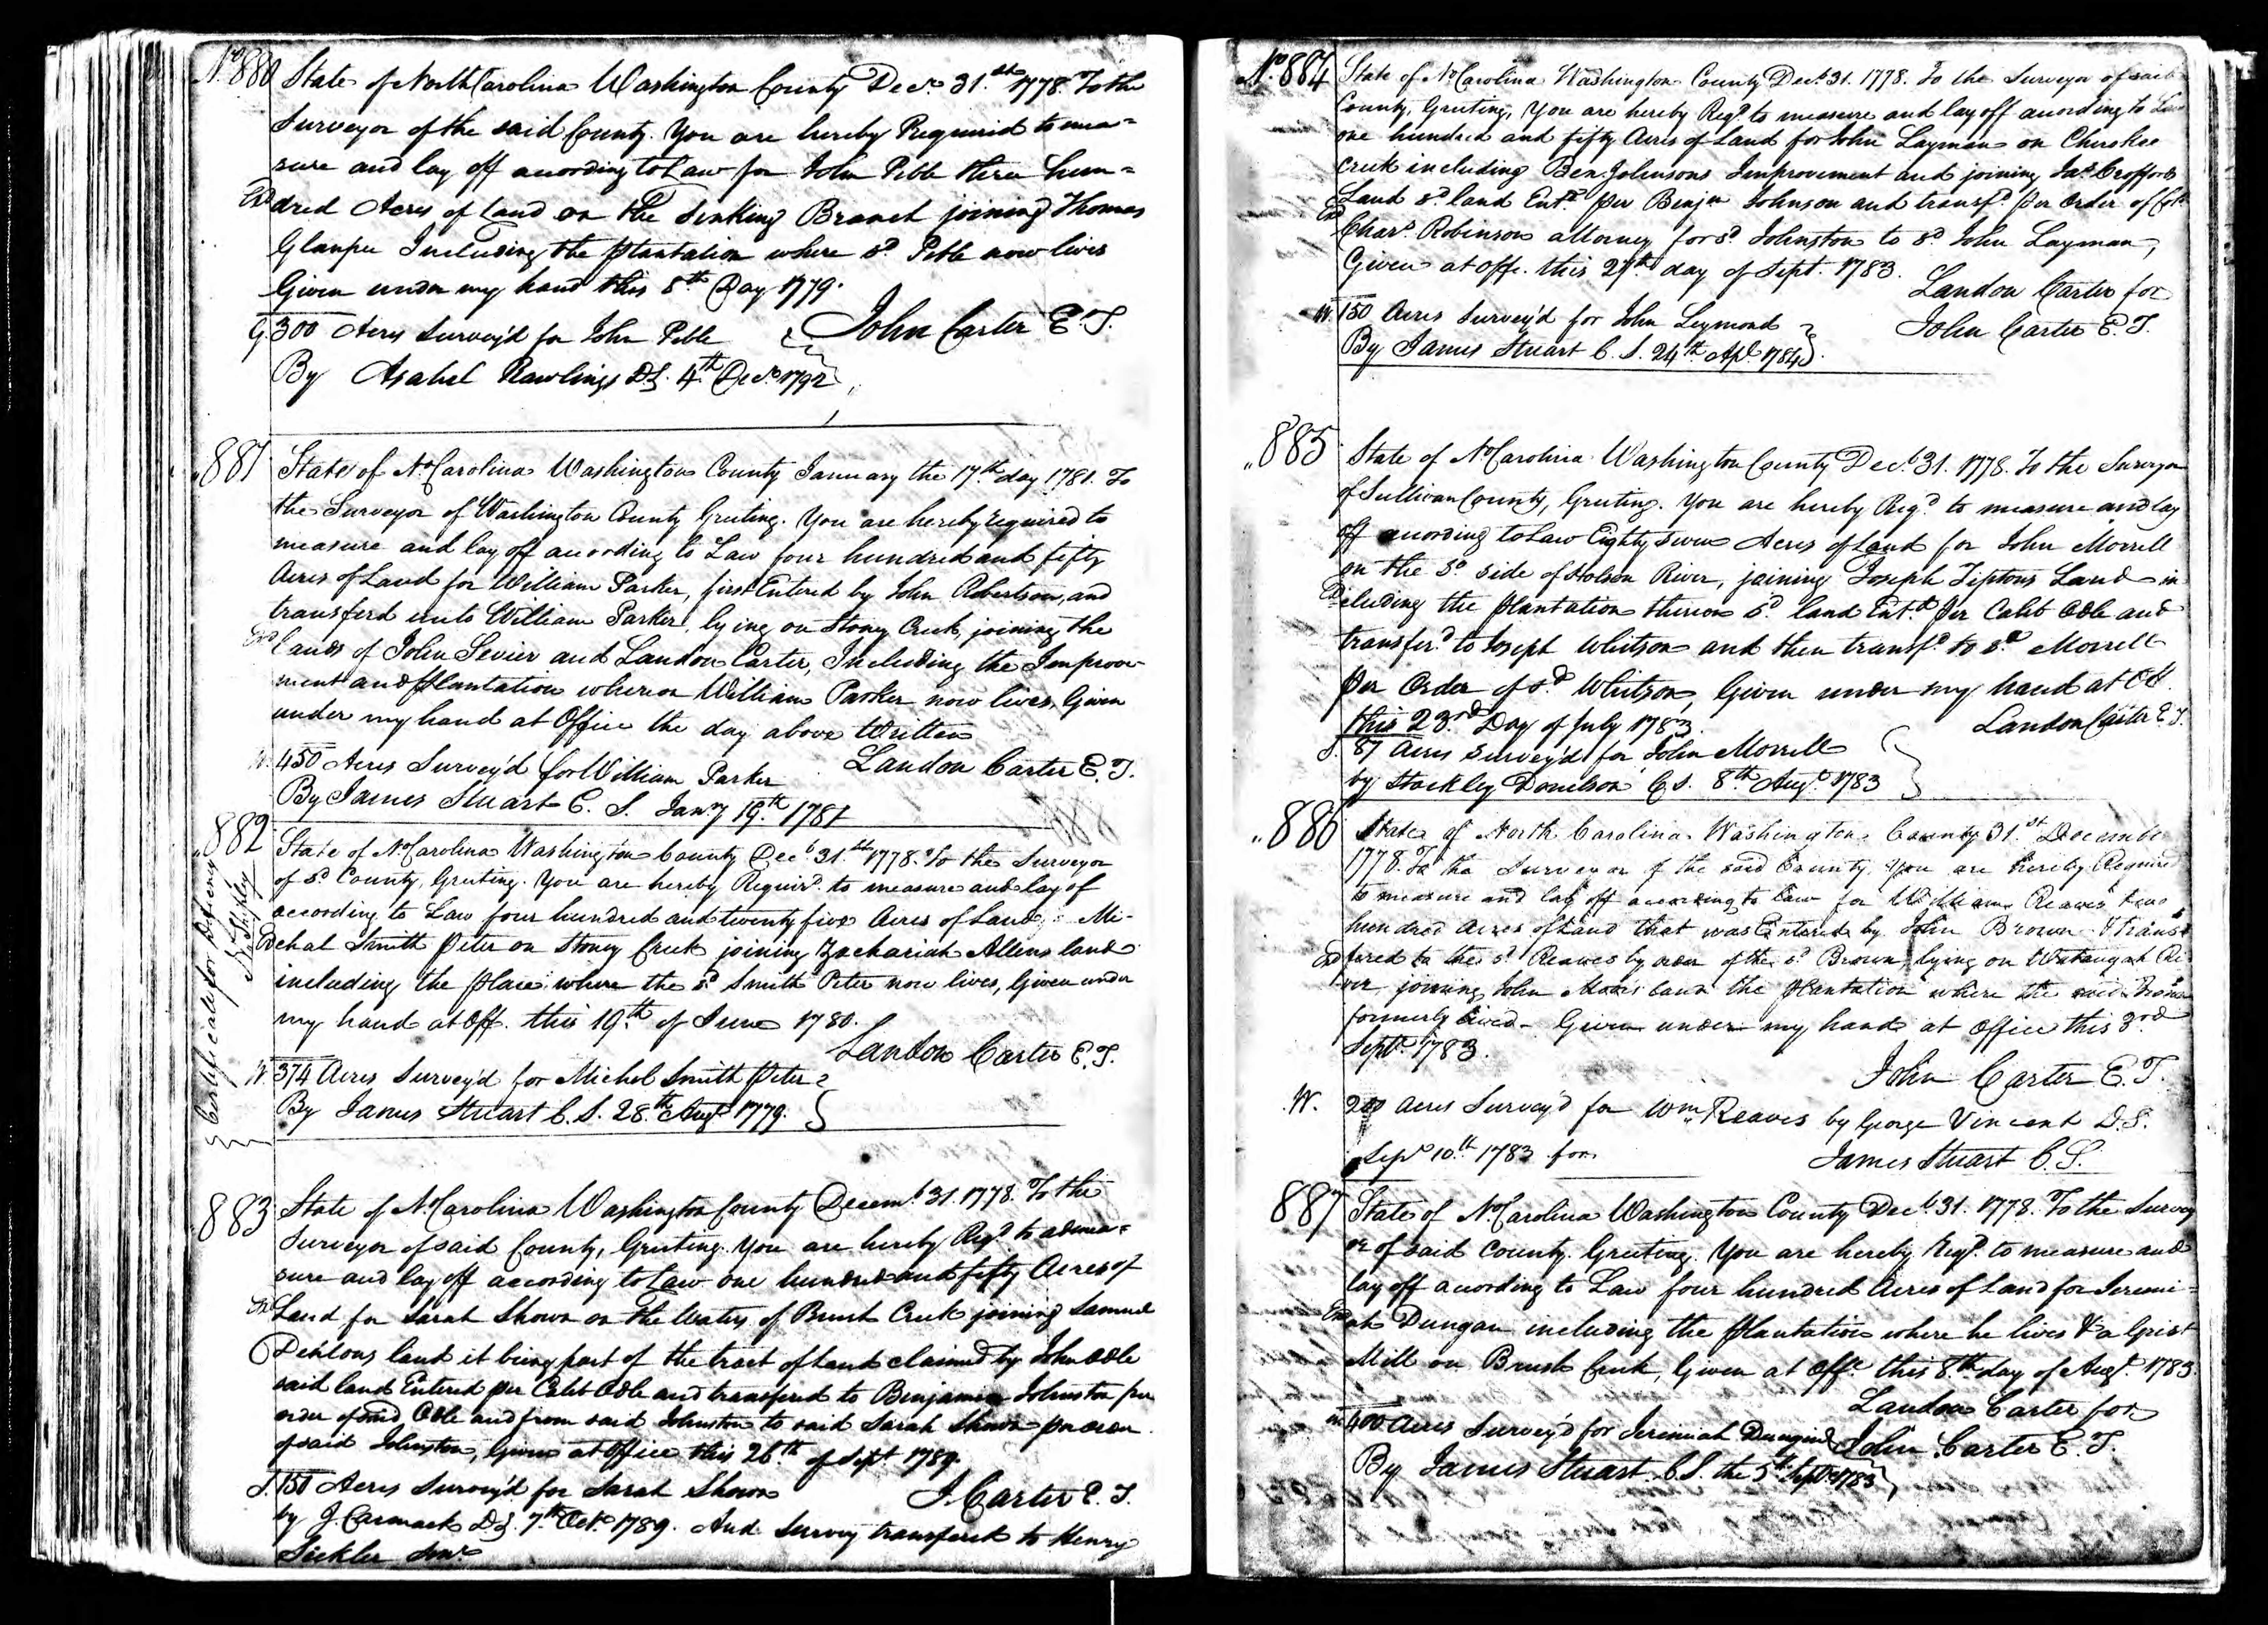 No 880 State of North Carolina Washington County Decr. 31.st 1778. To the
Surveyor of the said County. You are hereby Requireid to mea=
sure and lay off acording to Law for John Peble three hun=
dred Acres of Land on the Sinking Branch joining Thomas
Including the plantation where sd. Peble now lives
Given under my hand this 8th Day 1779.
John Carter E. T.
G. 300 Acres Survey'd for John Peble
By Asahel Rawlings D.S. 4th Decr. 1792
„881 State of No. Carolina Washington County January the 17th day 1781. To
the Surveyor of Washington County Greeting. You are hereby required to
measure and lay off acording to Law four hundred and fifty
Acres of Land for William Parker, first Entered by John Robertson, and
transferd unto William Parker, lying on Stony Creek, joining the
Lands of John Sevier and Landon Carter, Including the Improve-
ment and plantation wheron William Parker now lives, Given
under my hand at Office the day above Written
Landon Carter E. T.
W. 450 Acres Survey'd for William Parker
By James Stuart C. S. Jany 19th 1781
„882 State of No. Carolina Washington County Decb. 31.st 1778. To the Surveyor
of sd. County, Greeting. You are hereby Requird. to measure and lay of
according to Law four hundred and twenty five Acres of Land, Mi-
chal Smith Peter on Stoney Creek joining Zachariah Allens land
including the place where the sd. Smith Peter now lives, Given under
my hand at Off. this 19th of June 1780.
Landon Carter E. T.
W. 374 Acres Survey'd for Michel Smith Peter
By James Stuart C. S. 28th Augt. 1779.
883 State of No. Carolina Washington County Decemb. 31. 1778. To the
Surveyor of said County, Greeting. You are hereby Reqd. to admea=
sure and lay off according to Law one hundred and fifty Acres of
Land for Sarah Shown on the Waters of Brush Creek joining Samuel
Denlous land it being part of the tract of Land claimed by John Odle
said land Entered per Caleb Odle and transfered to Benjamin Johnston per
order of said Odle and from said Johnston to said Sarah Shown per order
of said Johnston, Given at Office this 26th of Sept. 1789.
J. Carter E. T.
S. 150 Acres Survey'd for Sarah Shown
by J. Carmack D.S. 7th Octr. 1789. And Survey transfered to Henry
Sickler
No. 884 State of No. Carolina Washington County Decb. 31. 1778. To the Surveyor of said
County, Greeting, You are hereby Reqd. to measure and lay off acording to Law
one hundred and fifty Acres of Land for John Layman on Cherokee
creek including Ben. Johnsons Improvement and joining Jas. Croffords
Land sd. land Entd. per Benjn. Johnson and transfd. per Order of Colo.
Chars. Robinson attorney for sd. Johnston to sd. John Layman,
Given at offe. this 29th day of Sept. 1783.
Landon Carter for
John Carter E. T.
W. 150 Acres Survey'd for John Leymond
By James Stuart C. S. 24th Apl. 1784
„885 State of No. Carolina Washington County Decb. 31. 1778. To the Surveyor
of Sullivan County, Greeting. You are hereby Reqd. to measure and lay
off acording to Law Eighty Seven Acres of Land for John Morrell
on the So. side of Holson River, joining Joseph Tiptons Land in
cluding the plantation theiron sd. land Entd. per Caleb Odle and
transferd. to Joseph Whitson and then transfd. to sd. Morrell
per Order of sd. Whitson, Given under my hand at Off.
this 23rd Day of July 1783.
Landon Carter E. T.
S. 87 Acres Survey'd for John Morrell
by Stockley Donelson C. S. 8th Augt. 1783
„886 State of North Carolina Washington County 31.st December
1778. To the Surveyor of the said County. You are hereby Required
to measure and lay off according to Law for William Reaves two
hundred Acres of Land that was Entered by John Brown & trans
fered to the sd. Reaves by order of the sd. Brown, lying on Wataugah Ri
ver, joining John land the plantation where the said Brown
formerly lived. Given under my hand at office this 3rd
Septr. 1783.
John Carter E. T.
W. 200 Acres Survey'd for Wm. Reaves by George Vincent D.S.
Sepr. 10.th 1783 for
James Stuart C. S.
887 State of No. Carolina Washington County Decb. 31. 1778. To the Survey
or of said County. Greeting. You are hereby Reqd. to measure and
lay off acording to Law four hundred Acres of Land for Jeremi=
ah Dungan including the plantation where he lives & a Grist
Mill on Brush Creek, Given at offe. this 8th day of Augt. 1783
Landon Carter for
John Carter E. T.
W. 400 Acres Survey'd for Jeremiah Dungin
By James Stuart C. S. the 5th Septr. 1783